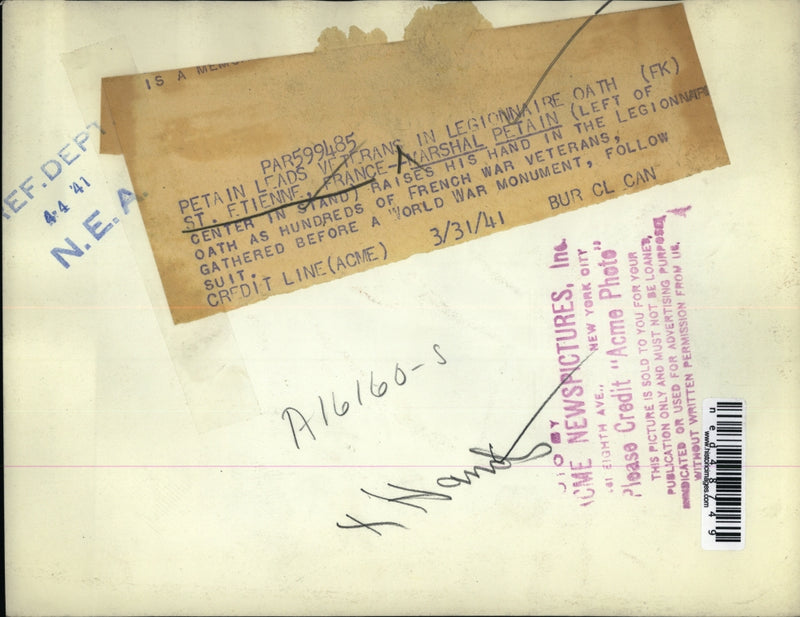 IS A
PAR599485
PETAIN LEADS VETERANS IN LEGIONNAIRE OATH (FK)
ST. ETIENNE, FRANCE--MARSHAL PETAIN (LEFT OF
CENTER IN STAND) RAISES HIS HAND IN THE LEGIONNAIRE
OATH AS HUNDREDS OF FRENCH WAR VETERANS,
GATHERED BEFORE A WORLD WAR MONUMENT, FOLLOW
SUIT.
CREDIT LINE (ACME) 3/31/41 BUR CL CAN
EF. DEPT
4-4 '41
N.E.A.
A16160-S
BY
ACME NEWSPICTURES, Inc.
EIGHTH AVE., NEW YORK CITY
Please Credit "Acme Photo"
THIS PICTURE IS SOLD TO YOU FOR YOUR
PUBLICATION ONLY AND MUST NOT BE LOANED,
SYNDICATED OR USED FOR ADVERTISING PURPOSES
WITHOUT WRITTEN PERMISSION FROM US.
www.historicimages.com
ned48749